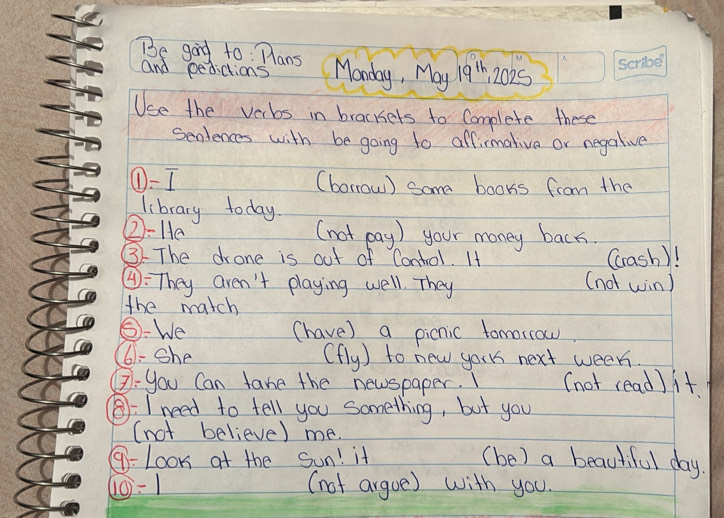 Be going to: Plans
and pedictions
Monday, May 19th, 2025
D M A
Scribe
Use the verbs in brackets to complete these
sentences with be going to affirmative or negative
1.- I (borrow) some books from the
library today.
2.- He (not pay) your money back.
3.- The drone is out of control. It (crash)!
4.- They aren't playing well. They (not win)
the match
5.- We (have) a picnic tomorrow.
6.- She (fly) to new york next week.
7.- you can take the newspaper. I (not read) it.
8.- I need to tell you something, but you
(not believe) me.
9.- Look at the sun! it (be) a beautiful day.
10.- I (not argue) with you.